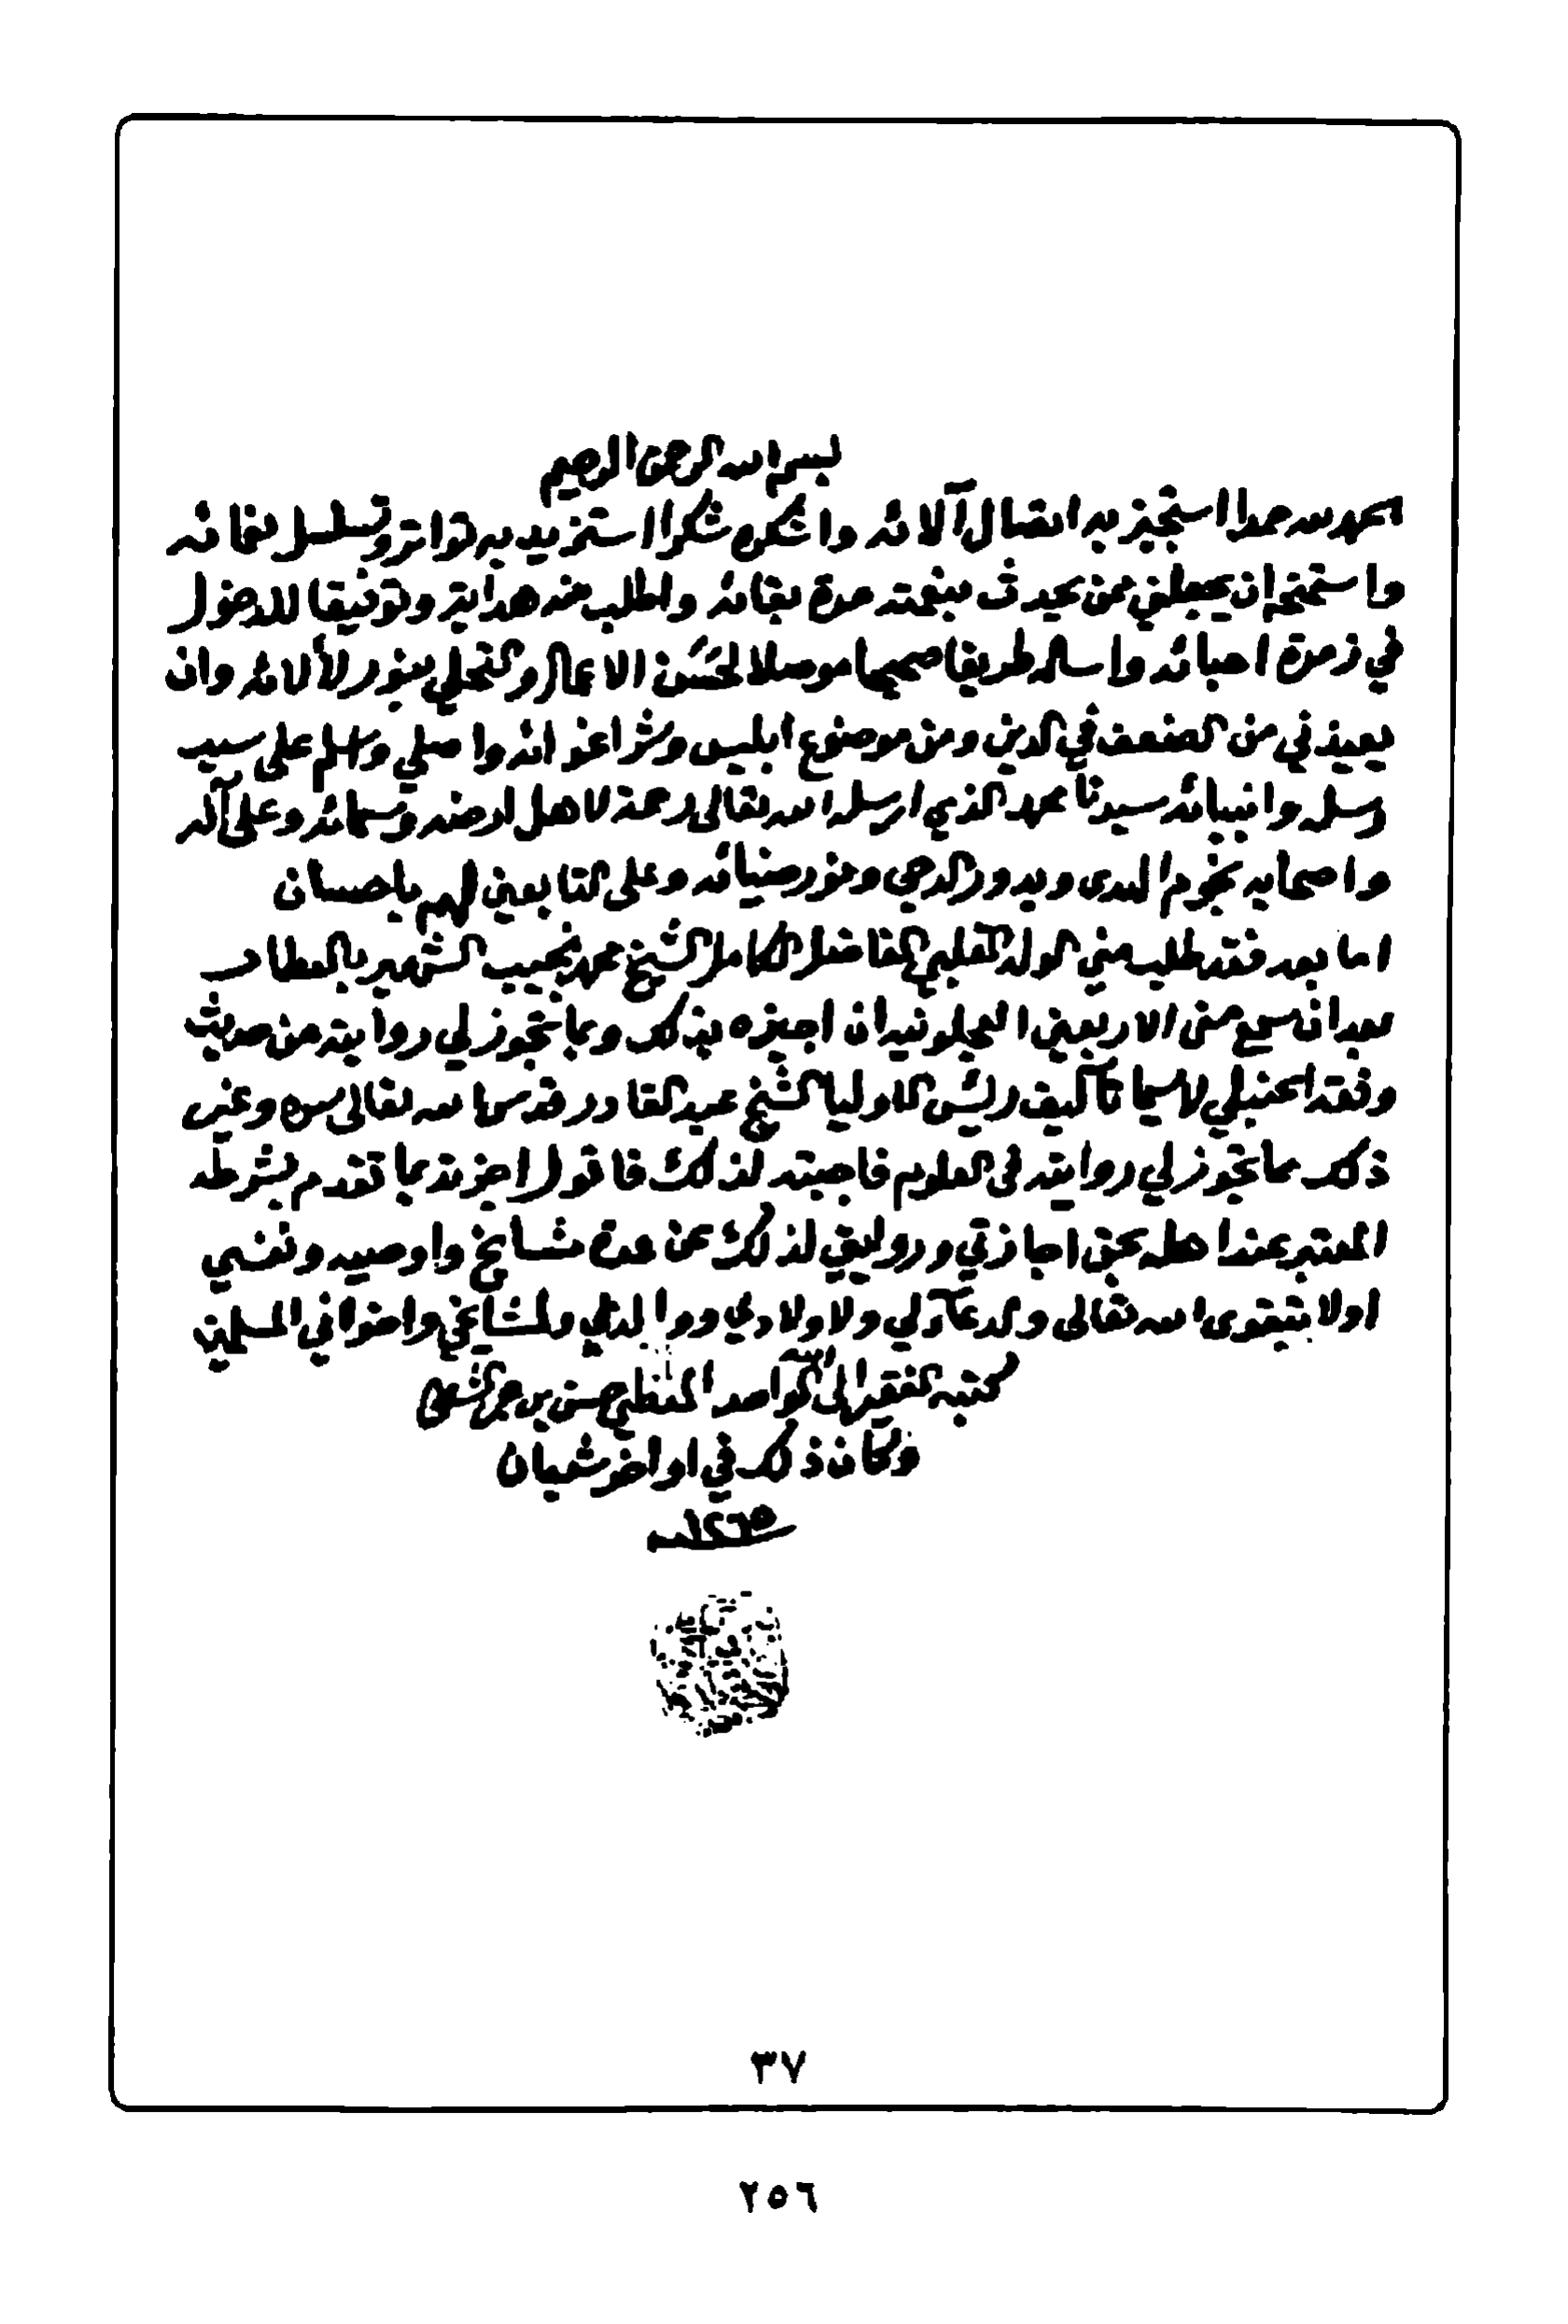 بسم الله الرحمن الرحيم
الحمد لله حمدا استجيز به اتصال آلائه واشكره شكرا استزيد به تواتر وتسلسل نعمائه
واستمنحه ان يجعلني ممن يحدث بنعمته مدة بقائه واطلب منه هداية وتوفيقا للدخول
في زمرة احبائه واساله طريقا صحيحا موصلا لحسن الاعمال والتحلي بنور لألائه وان
يعيذني من الضعف في الدين ومن موضوع ابليس وشر اغوائه واصلي واسلم على سيد
رسله وانبيائه سيدنا محمد الذي ارسله الله تعالى رحمة لاهل ارضه وسمائه وعلى آله
واصحابه نجوم الهدى وبدور الدجى ونور ضيائه وعلى التابعين لهم باحسان
اما بعد فقد طلب مني الولد القلبي الفاضل الكامل الشيخ محمد نجيب الشهير بالعطار
بعد ان سمع مني الاربعين العجلونية ان اجيزه بذلك وبما تجوز لي روايته من حديث
وفقه الحنبلي لاسيما تآليف رئيس الاوليا الشيخ عبد القادر قدس الله تعالى سره وغير
ذلك مما تجوز لي روايته في العلوم فاجبته لذلك فاقول اجزته بما تقدم بشرطه
المعتبر عند اهله بحق اجازتي وروايتي لذلك عن عدة مشايخ واوصيه ونفسي
اولا بتقوى الله تعالى والدعاء لي ولاولادي ووالدي ولمشايخي واخواني المسلمين
كتبه الفقير الى الله الواحد العلي حسن بن عمر الشطي
وكان ذلك في اواخر شعبان
١٢٦٥
٣٧
٢٥٦